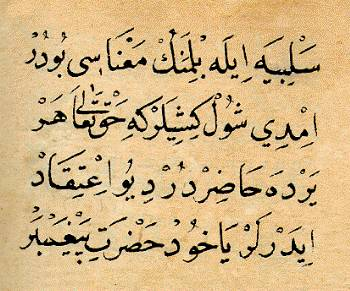 سَلْبِيَه اِيلَه بِلْمَنِكْ مَعْنَاسِى بُودُرْ
اِمْدِي شُولْ كِشِيلَرْكِه حَقْ تَعَالٰى هَرْ
يَرْدَه حَاضِرْدُرْ دِيُو اِعْتِقَادْ
اِيدَرْلَرْ يَاخُودْ حَضْرَتِ پَيْغَمْبَرْ